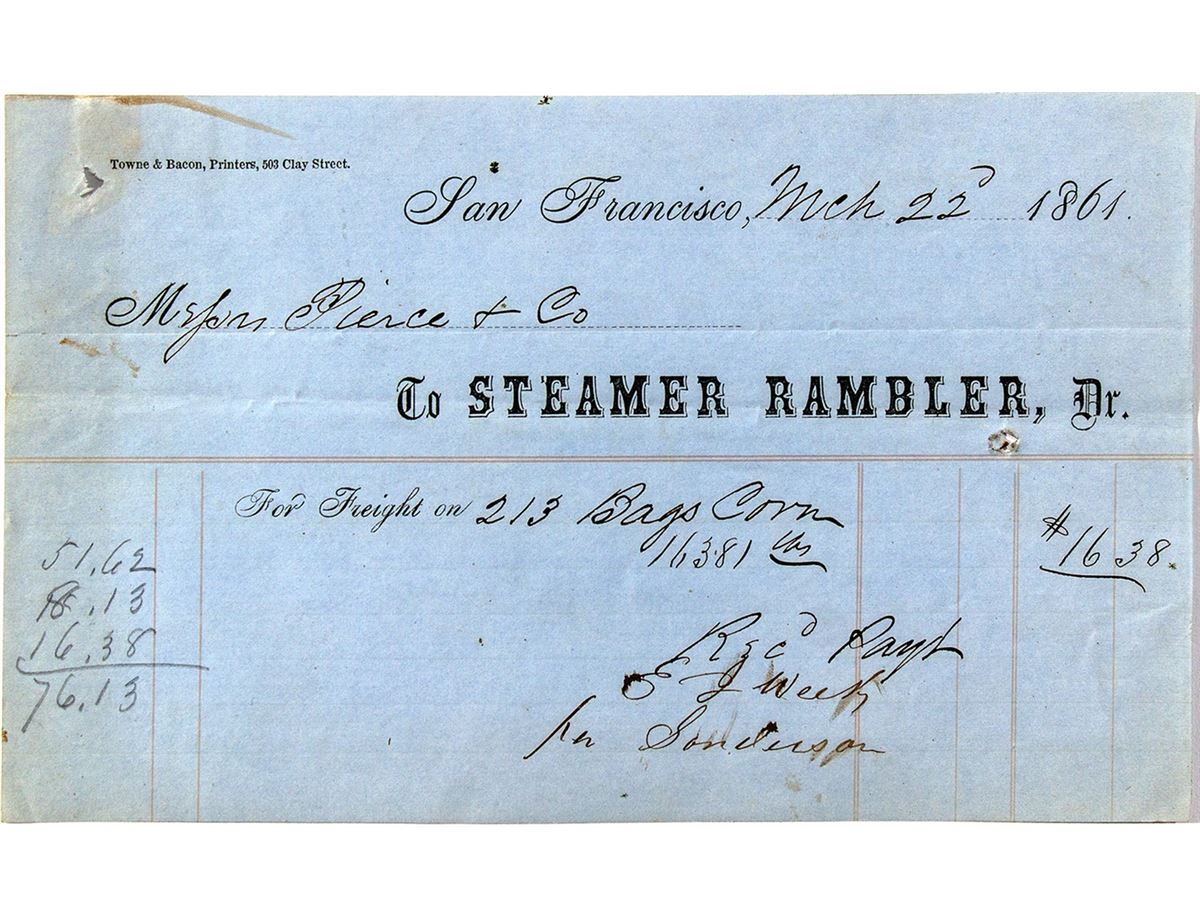 Towne & Bacon, Printers, 503 Clay Street.
San Francisco, Mch 22d 1861.
Messrs Pierce & Co
To STEAMER RAMBLER, Dr.
For Freight on 213 Bags Corn
16381 lbs $16 38.
51.62
8.13
16.38
76.13
Recd Payt
E J Weeks
per Sonderson